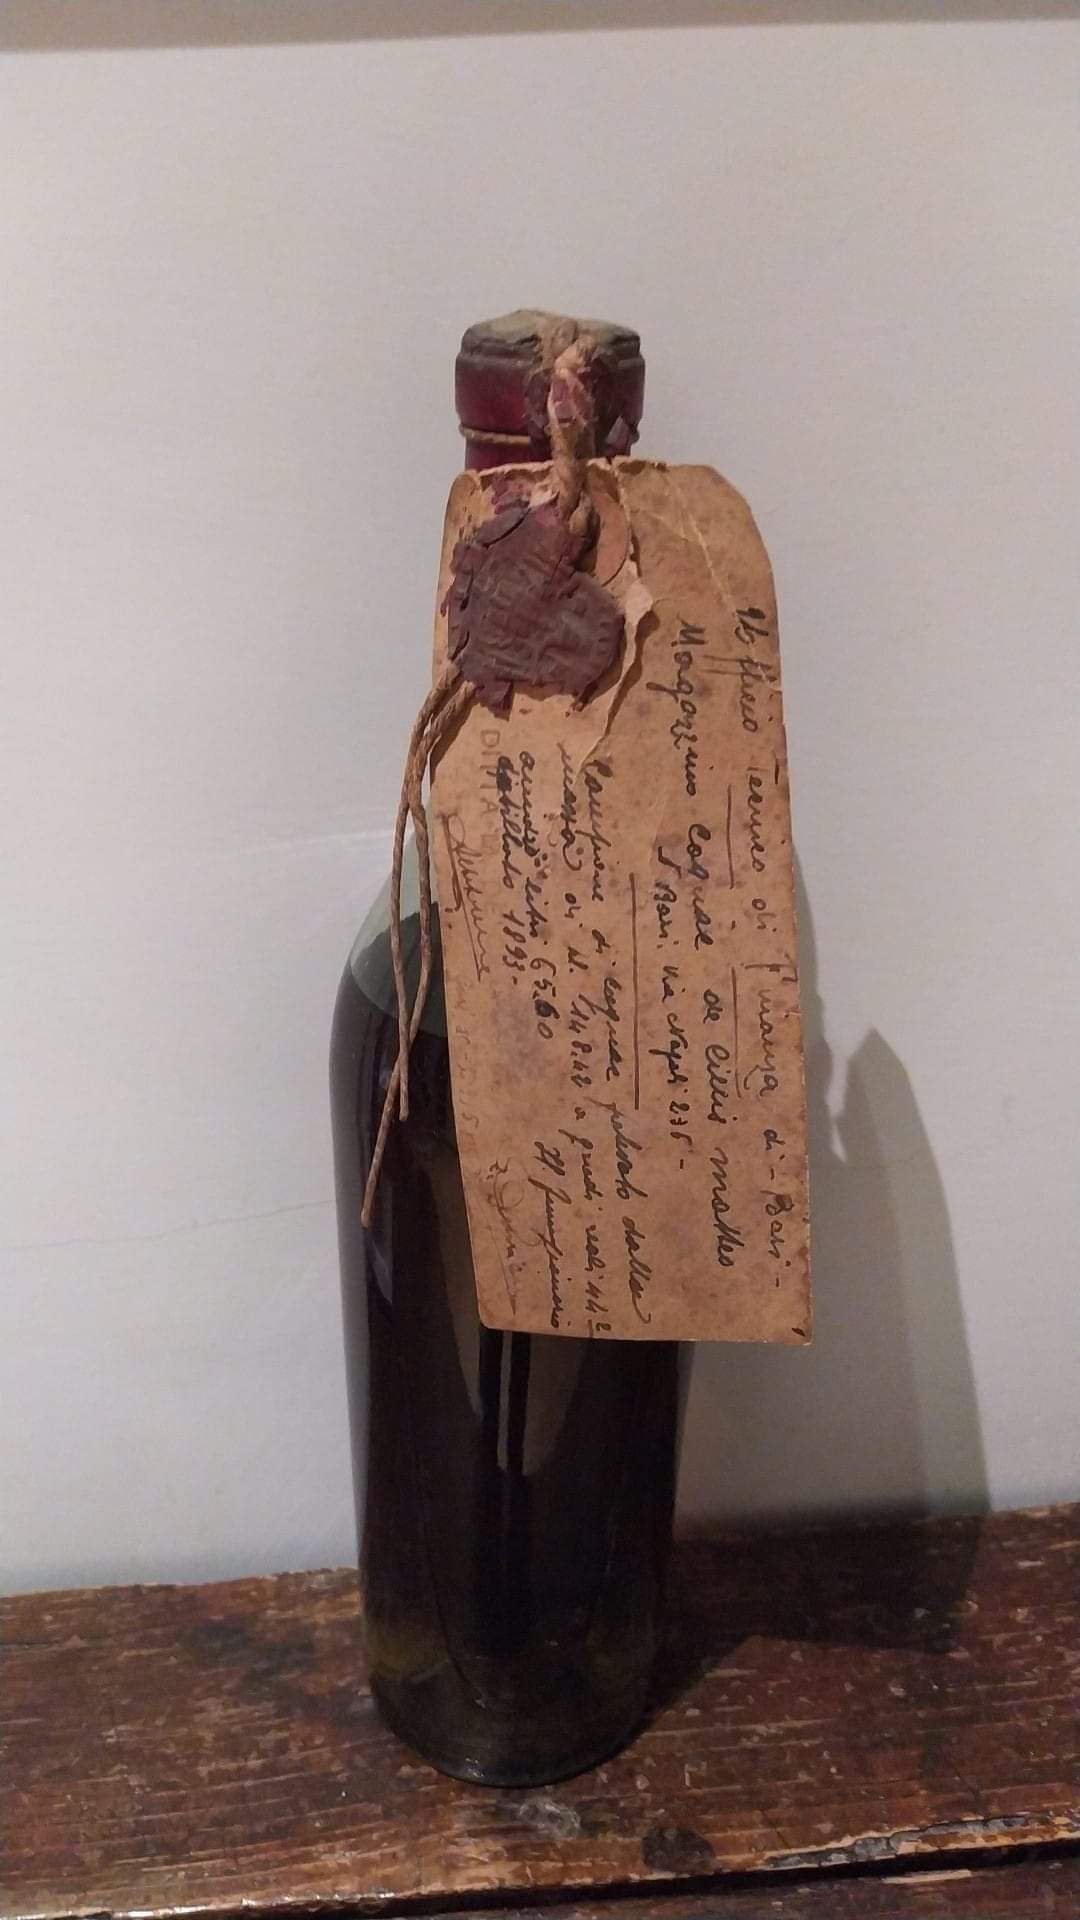 Ufficio Tecnico di Finanza di - Bari -
Magazzino Cognac de Cillis Matteo
Bari Via Napoli 276 -
Campione di cognac prelevato dalla
massa di N. 148.42 a gradi reali 44.2
anidri litri 65.60
distillato 1893 -
Il funzionario